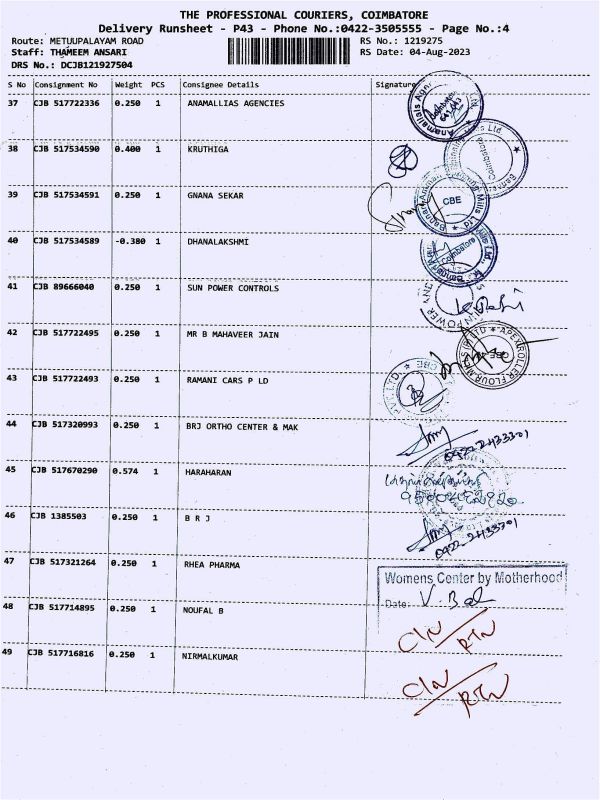 THE PROFESSIONAL COURIERS, COIMBATORE
Delivery Runsheet - P43 - Phone No.:0422-3505555 - Page No.:4
Route: METUUPALAYAM ROAD RS No.: 1219275
Staff: THAMEEM ANSARI RS Date: 04-Aug-2023
DRS No.: DCJB121927504
S No Consignment No Weight PCS Consignee Details Signature
37 CJB 517722336 0.250 1 ANAMALLIAS AGENCIES
38 CJB 517534590 0.400 1 KRUTHIGA
39 CJB 517534591 0.250 1 GNANA SEKAR
CBE
40 CJB 517534589 -0.380 1 DHANALAKSHMI
Coimbatore
41 CJB 89666040 0.250 1 SUN POWER CONTROLS
42 CJB 517722495 0.250 1 MR B MAHAVEER JAIN
APEX ROLLER FLOUR MILLS (P) LTD
CBE
43 CJB 517722493 0.250 1 RAMANI CARS P LD
44 CJB 517320993 0.250 1 BRJ ORTHO CENTER & MAK
0422-2433301
45 CJB 517670290 0.574 1 HARAHARAN
46 CJB 1385503 0.250 1 B R J
0422-2433301
47 CJB 517321264 0.250 1 RHEA PHARMA
Womens Center by Motherhood
Date:
48 CJB 517714895 0.250 1 NOUFAL B
C/N
RTN
49 CJB 517716816 0.250 1 NIRMALKUMAR
C/N
RTN